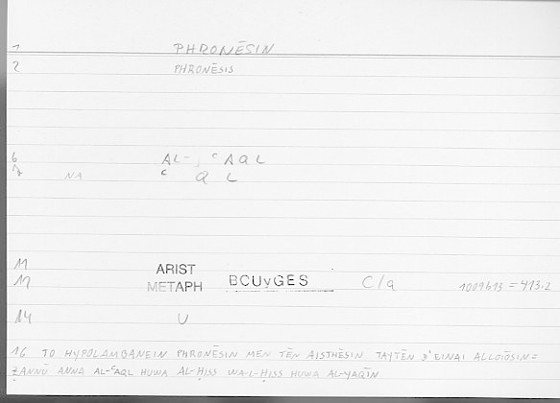 1 PHRONĒSIN
2 PHRONĒSIS
6 AL- ʿAQL
NA ʿ Q L
11 ARIST
METAPH BOUyGES C/q 1009b13 = 413.2
14 U
16 TO HYPOLAMBANEIN PHRONĒSIN MEN TĒN AISTHĒSIN, TAYTĒN D'EINAI ALLOIŌSIN =
ẒANNŪ ANNA AL-ʿAQL HUWA AL-ḤISS WA-L-ḤISS HUWA AL-YAQĪN